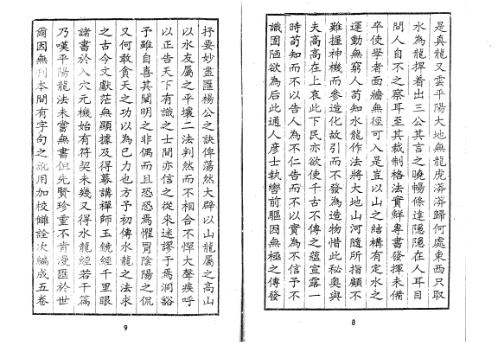 是真龍又雲平陽大地無龍虎漭漭歸何處東西只取
水為龍擇着出三公其言之曉暢條達隱隱在人耳目
間人自不之察耳至其裁制格法實鮮專書發揮未備
卒使學者面牆無徑可入是豈以山之結構有定水之
運動無窮人苟知水龍作法將大地山河隨所指顧不
難握神機而參造化故引而不發為造物惜此秘奧與
夫高高在上哀此下民亦欲使千古不傳之蘊宣露一
時苟知而不以告人為不仁告而不以實為不信予不
識固陋欲為后此通人彥士執轡前驅因無極之傳發
8
抒要妙盡匯楊公之訣俾蕩然大辟以山龍屬之高山
以水友屬之平壤二法判然而不相合不憚大聲疾呼
以正告天下有識之士間亦信之從來迷謬于焉洞豁
予雖自喜其闡明之非偶而且恐焉惕胃陰陽之侃
又何敢貪天之功以為己力也方予初傳水龍之法求
之古今文獻茫無顯據及得幕講禪師玉鏡經千里眼
諸書於入穴元機始有符契未幾又得水龍經若干篇
乃嘆平陽龍法未嘗無書但先賢珍重不肯漫匯於世
爾因無刊本間有字句之訛用加校讎詮次編成五卷
9